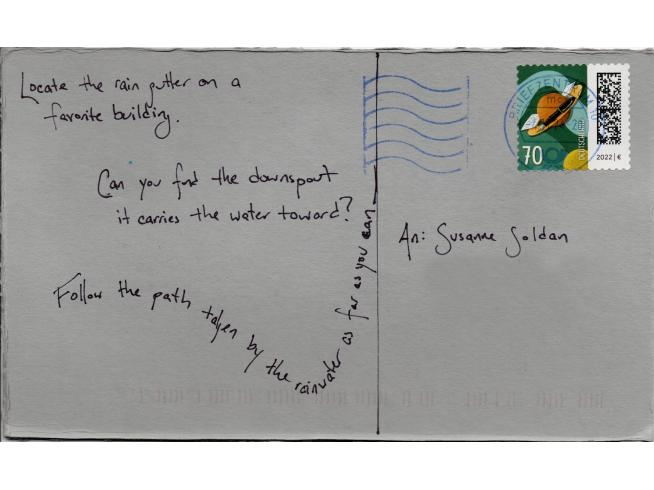 Locate the rain gutter on a
favorite building.
Can you find the downspout
it carries the water toward?
Follow the path taken by the rainwater as far as you can
An: Susanne Soldan
BRIEFZENTRUM
70
DEUTSCHLAND
2022 | €